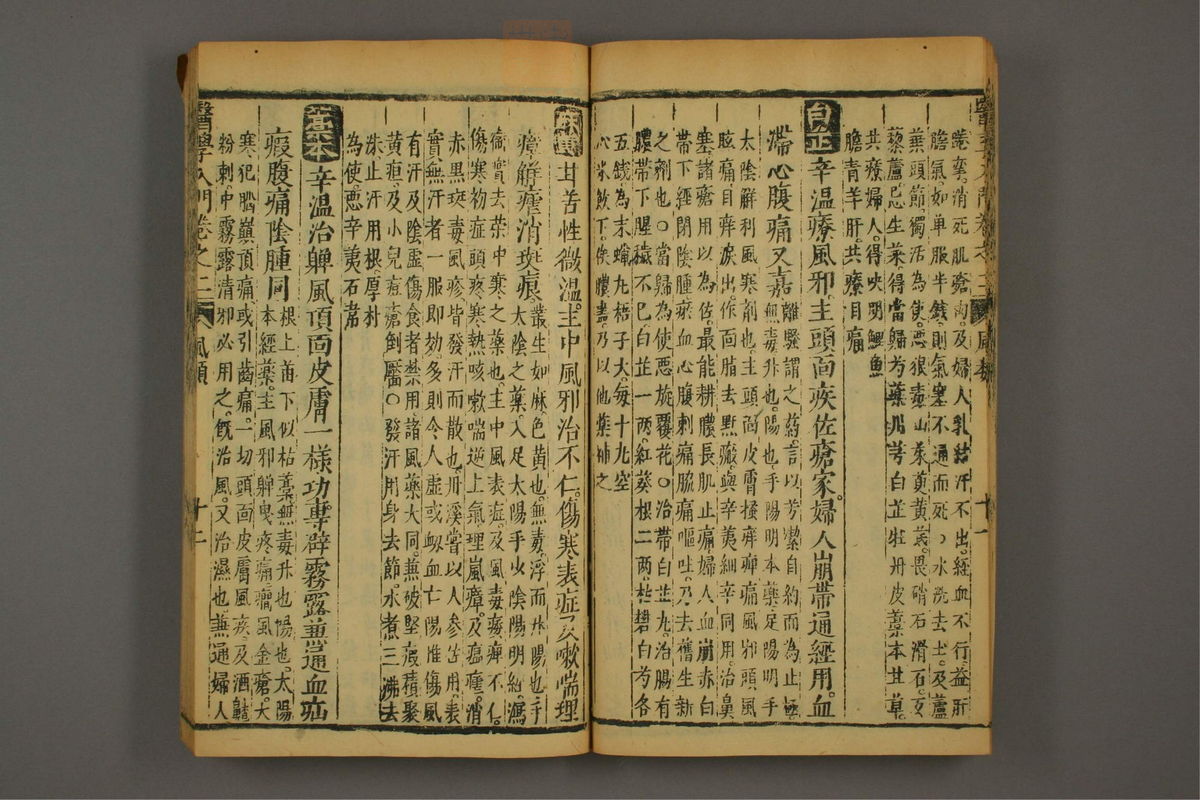 攣消死肌瘡肉及婦人乳結汗不出。經血不行。益肝
膽氣。如單服半錢。則氣塞不通而死。水洗去土。及蘆
頭節。獨活為使。惡狼毒山茱萸黃茋。畏硝石滑石。反
藜蘆。忌生菜。得當歸芍藥川芎白芷牡丹皮藁本甘草。
共療婦人。得決明鯉魚
膽青羊肝。共療目痛
白芷 辛溫療風邪。主頭面疾佐瘡家。婦人崩帶通經用。血
滯心腹痛又嘉 離騷謂之葯。言以芳潔自約而為止極
無毒升也。陽也。手陽明本藥足陽明手
太陰解利風寒劑也。主頭面皮膚搔痹痛風邪頭風
眩痛目痒淚出。作面脂去黑瘢。與辛荑細辛同用。治鼻
塞諸瘡用以為佐。最能耕膿長肌止痛婦人血崩赤白
帶下經閉陰腫瘀血心腹刺痛脇痛嘔吐。乃去舊生新
之劑也。○當歸為使。惡旋覆花。○治帶白芷丸。治腸有
膿帶下腥穢不已。白芷一兩。紅葵根二兩。枯礬白芍各
五錢為末。蠟丸梧子大。每十九空
心米飲下。俟膿盡。乃以他藥補之
麻黃 甘苦性微溫。主中風邪治不仁。傷寒表症及嗽喘理
瘴解瘧消斑痕 叢生如麻。色黃也。無毒。浮而升。陽也。手
太陰之藥。入足太陽手少陰陽明經。瀉
衛實去榮中寒之藥也。主中風表症。及風毒痹不仁。
傷寒初症。頭疼寒熱咳嗽喘逆上氣。理嵐瘴。及瘟瘧。消
赤黑斑毒風疹。皆發汗而散也。丹溪嘗以人參㕮用。表
實無汗者一服即効。多則令人虛。或衂血亡陽。惟傷風
有汗及陰虛傷食者禁用。諸風藥大同。兼破堅癥積聚
黃疸。及小兒痘瘡倒黶。○發汗用身去節。水煮三沸去
沫。止汗用根。厚朴
為使。惡辛荑石葦
藁本 辛溫治嚲風頂面皮膚一樣功。專辟霧露兼通血疝
瘕腹痛陰腫同 根上苗下似枯藁。無毒升也。陽也。太陽
本經藥。主風邪嚲曳疼痛癇風金瘡。大
寒犯腦巔頂痛。或引齒痛。一切頭面皮膚風疾。及酒齄
粉刺。中霧露清邪必用之。既治風。又治濕也。兼通婦人
醫學入門卷之二 風類 十二